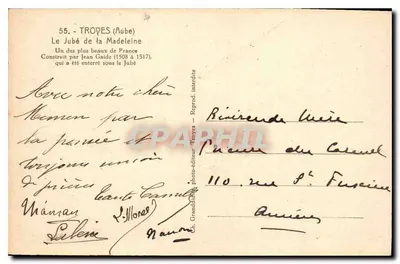 55. - TROYES (Aube)
Le Jubé de la Madeleine
Un des plus beaux de France
Construit par Jean Gaide (1508 à 1517),
qui a été enterré sous le Jubé
Avec notre chère
Maman par
la pensée et
toujours union
de prières
Tante
Maman
Ch. Grandclerc, photo-éditeur, Troyes - Reprod. interdite
CPARAMA
Révérende Mère
Prieure du Carmel
110, rue St Fuscien
Amiens